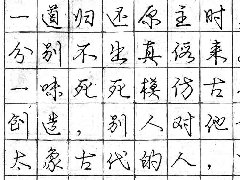 一道归还原主时
分别不出真伪来。
一味死死模仿古
创造，别人对他
太象古代的人，